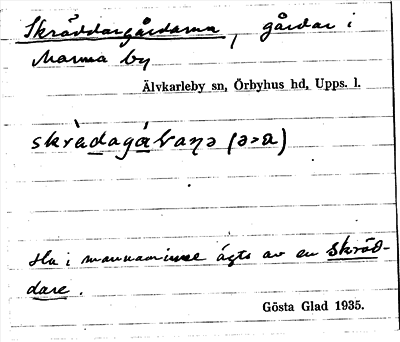 Skräddargårdarna, gårdar i
Marma by
Älvkarleby sn, Örbyhus hd, Upps. l.
skrὰdagάvaꞃə (ə>a)
i mannaminne ägts av en skräd-
dare.
Gösta Glad 1935.